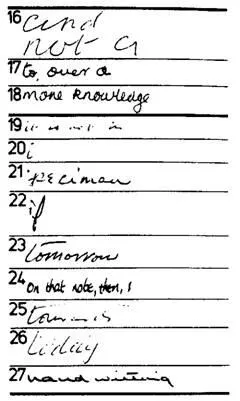 16 and
not a
17 to, over a
18 more knowledge
19 it is not in
20 i
21
22 if
23 tomorrow
24 on that note, then, I
25 towards
26 today
27 hand writing